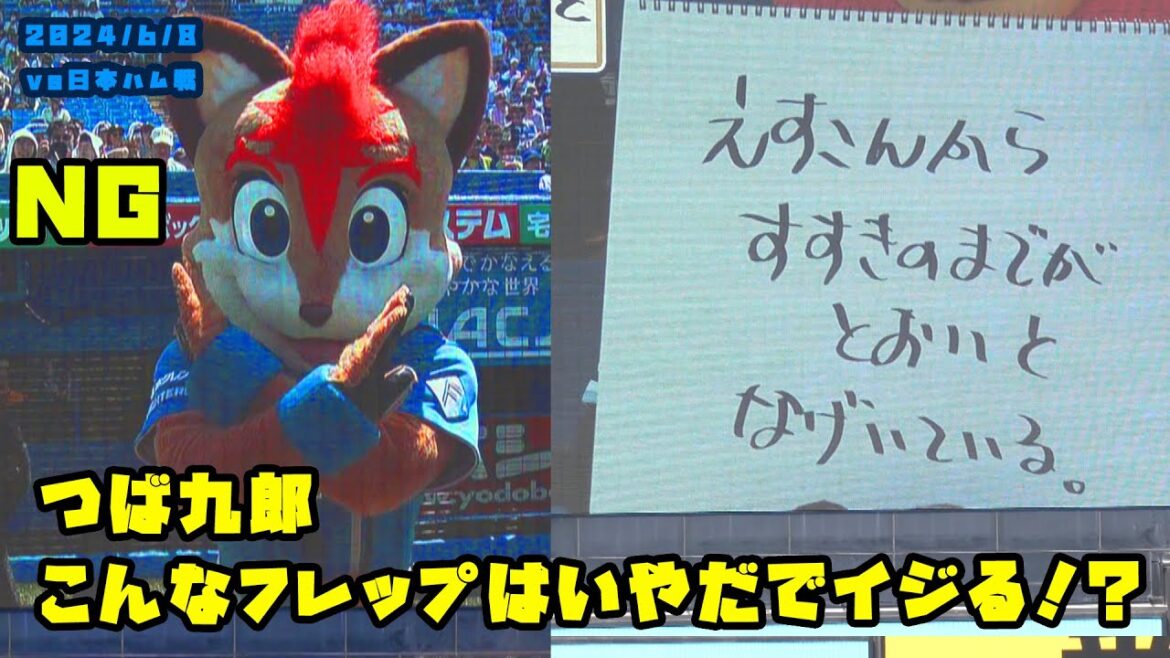 2024/6/8
vs日本ハム戦
NG
と
えすこんから
すすきのまでが
とおいと
なげいている。
ステム
宅
でかなえる
やかな世界
yodoba
つば九郎
こんなフレップはいやだでイジる!?